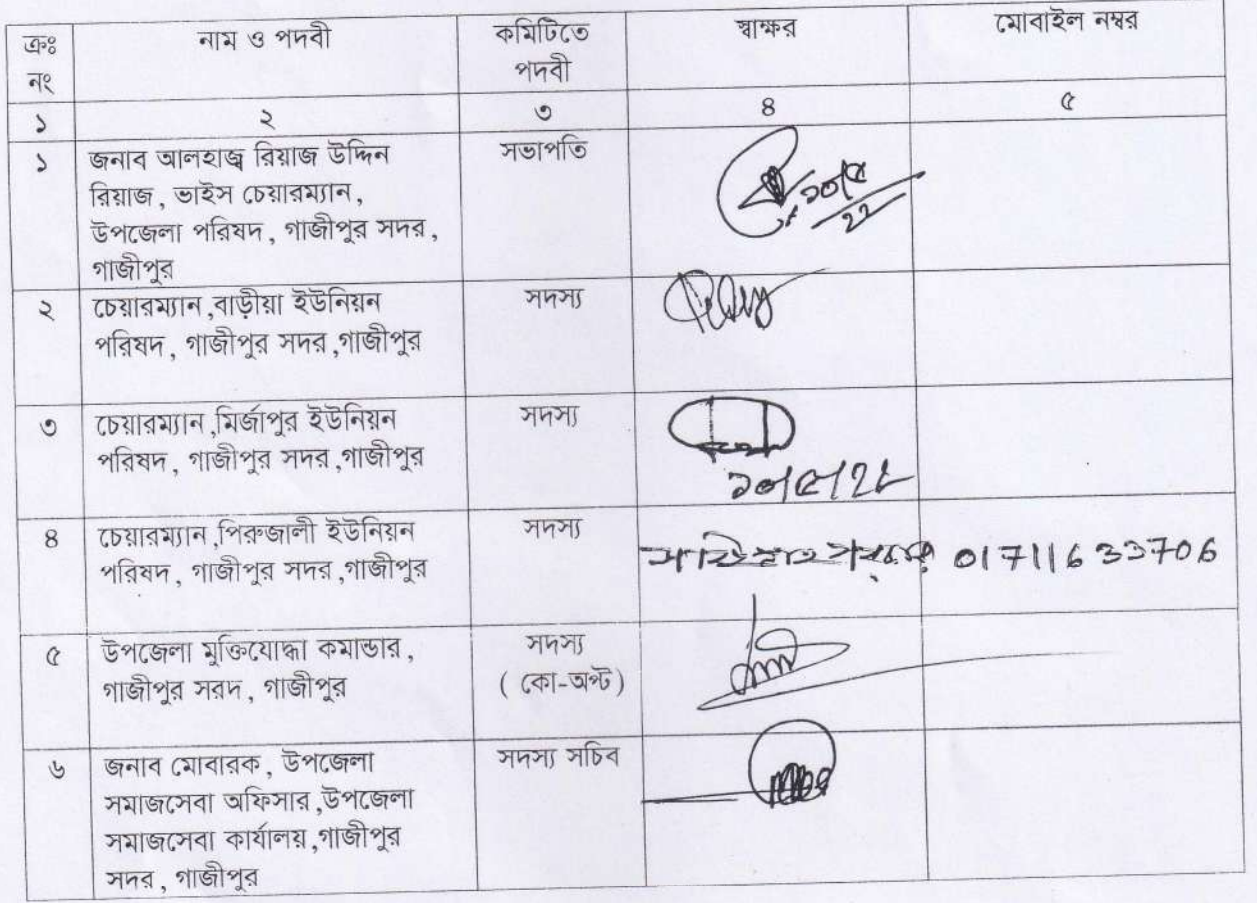 ক্রঃ নং নাম ও পদবী কমিটিতে পদবী স্বাক্ষর মোবাইল নম্বর
১ ২ ৩ ৪ ৫
১ জনাব আলহাজ্ব রিয়াজ উদ্দিন সভাপতি
রিয়াজ, ভাইস চেয়ারম্যান,
উপজেলা পরিষদ, গাজীপুর সদর,
গাজীপুর
২ চেয়ারম্যান,বাড়ীয়া ইউনিয়ন সদস্য
পরিষদ, গাজীপুর সদর,গাজীপুর
৩ চেয়ারম্যান,মির্জাপুর ইউনিয়ন সদস্য
পরিষদ, গাজীপুর সদর,গাজীপুর
৪ চেয়ারম্যান,পিরুজালী ইউনিয়ন সদস্য
পরিষদ, গাজীপুর সদর,গাজীপুর 01711633706
৫ উপজেলা মুক্তিযোদ্ধা কমান্ডার, সদস্য
গাজীপুর সরদ, গাজীপুর ( কো-অপ্ট)
৬ জনাব মোবারক, উপজেলা সদস্য সচিব
সমাজসেবা অফিসার,উপজেলা
সমাজসেবা কার্যালয়,গাজীপুর
সদর, গাজীপুর